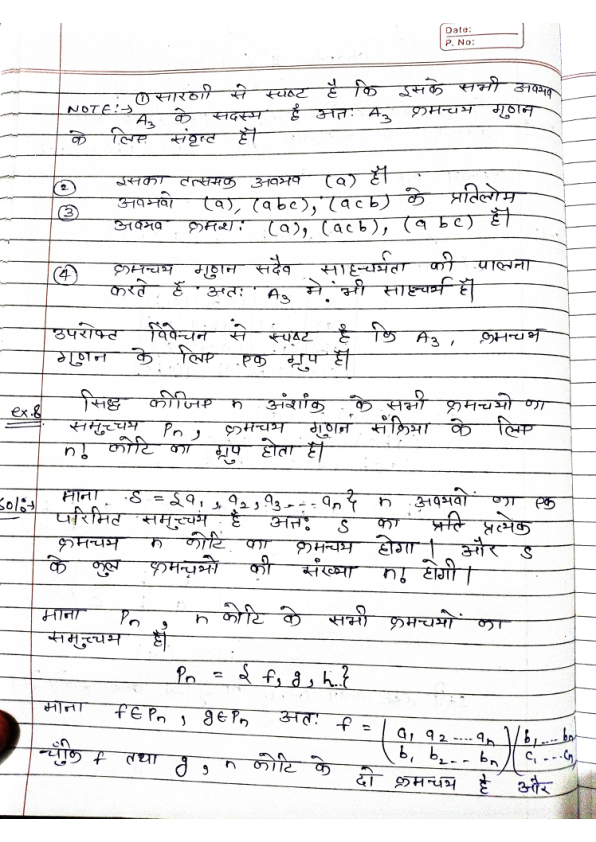 Date:
P. No:
NOTE:→ ① सारणी से स्पष्ट है कि इसके सभी अवयव
A₃ के सदस्य है अतः A₃ क्रमचय गुणन
के लिए संवृत्त है।
② इसका तत्समक अवयव (a) है।
③ अवयवो (a), (abc), (acb) के प्रतिलोम
अवयव क्रमशः (a), (acb), (abc) है।
④ क्रमचय गुणन सदैव साहचर्यता की पालना
करते है अतः A₃ मे भी साहचर्य है।
उपरोक्त विवेचन से स्पष्ट है कि A₃, क्रमचय
गुणन के लिए एक ग्रुप है।
ex.8 सिद्ध कीजिए n अंशांक के सभी क्रमचयो का
समुच्चय Pn, क्रमचय गुणन संक्रिया के लिए
n! कोटि का ग्रुप होता है।
Sol:→ माना S = {a₁, a₂, a₃ ... an} n अवयवों का एक
परिमित समुच्चय है अतः S का प्रति प्रत्येक
क्रमचय n कोटि का क्रमचय होगा। और S
के कुल क्रमचयो की संख्या n! होगी।
माना Pn, n कोटि के सभी क्रमचयों का
समुच्चय है।
Pn = {f, g, h..}
माना f∈Pn, g∈Pn अतः f = (a₁ a₂ .... an) (b₁ .... bn)
(b₁ b₂ ... bn) (c₁ ... cn)
चूँकि f तथा g, n कोटि के दो क्रमचय है और